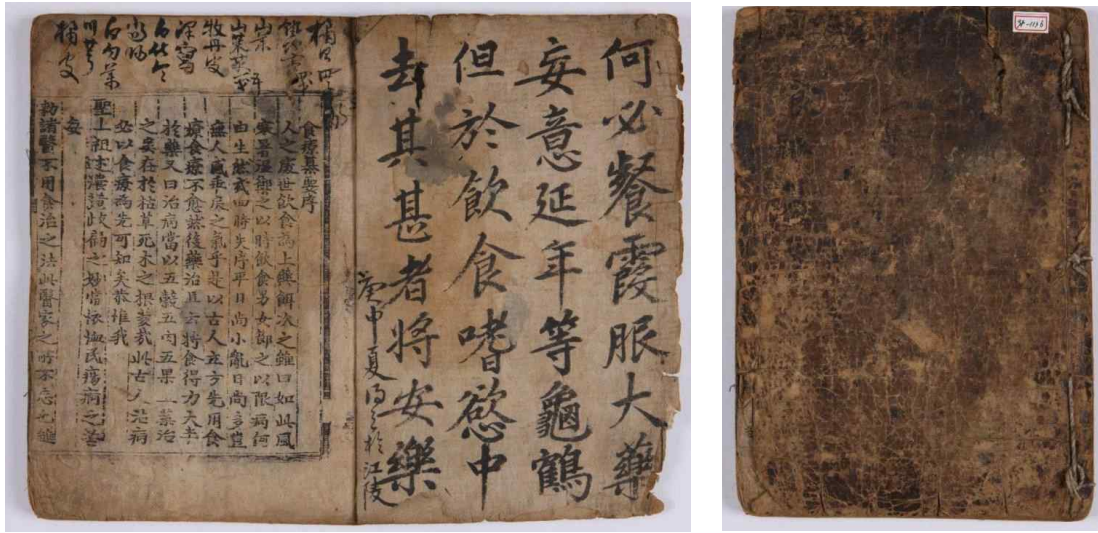 何必餐霞服大藥
妄意延年等龜鶴
但於飲食嗜慾中
去其甚者將安樂
庚申夏得之於江陵
牧丹皮
橘皮
食療纂要序
人之處世飲食為上藥餌次之雖曰如此風
寒暑濕禦之以時飲食男女節之以限病何
由生然或四時失序平日尚小亂日尚多豈
無人感乖戾之氣乎是以古人立方先用食
療食療不愈然後藥治且云得食得力大半
於藥又曰治病當以五穀五肉五果一菜治
之奚在於枯草死木之根荄哉此古人治病
必以食療為先可知矣恭惟我
聖上祖述 岐扁之妙嘗 民瘍病之苦
每
勅諸醫不用食治之法此醫家之所不急